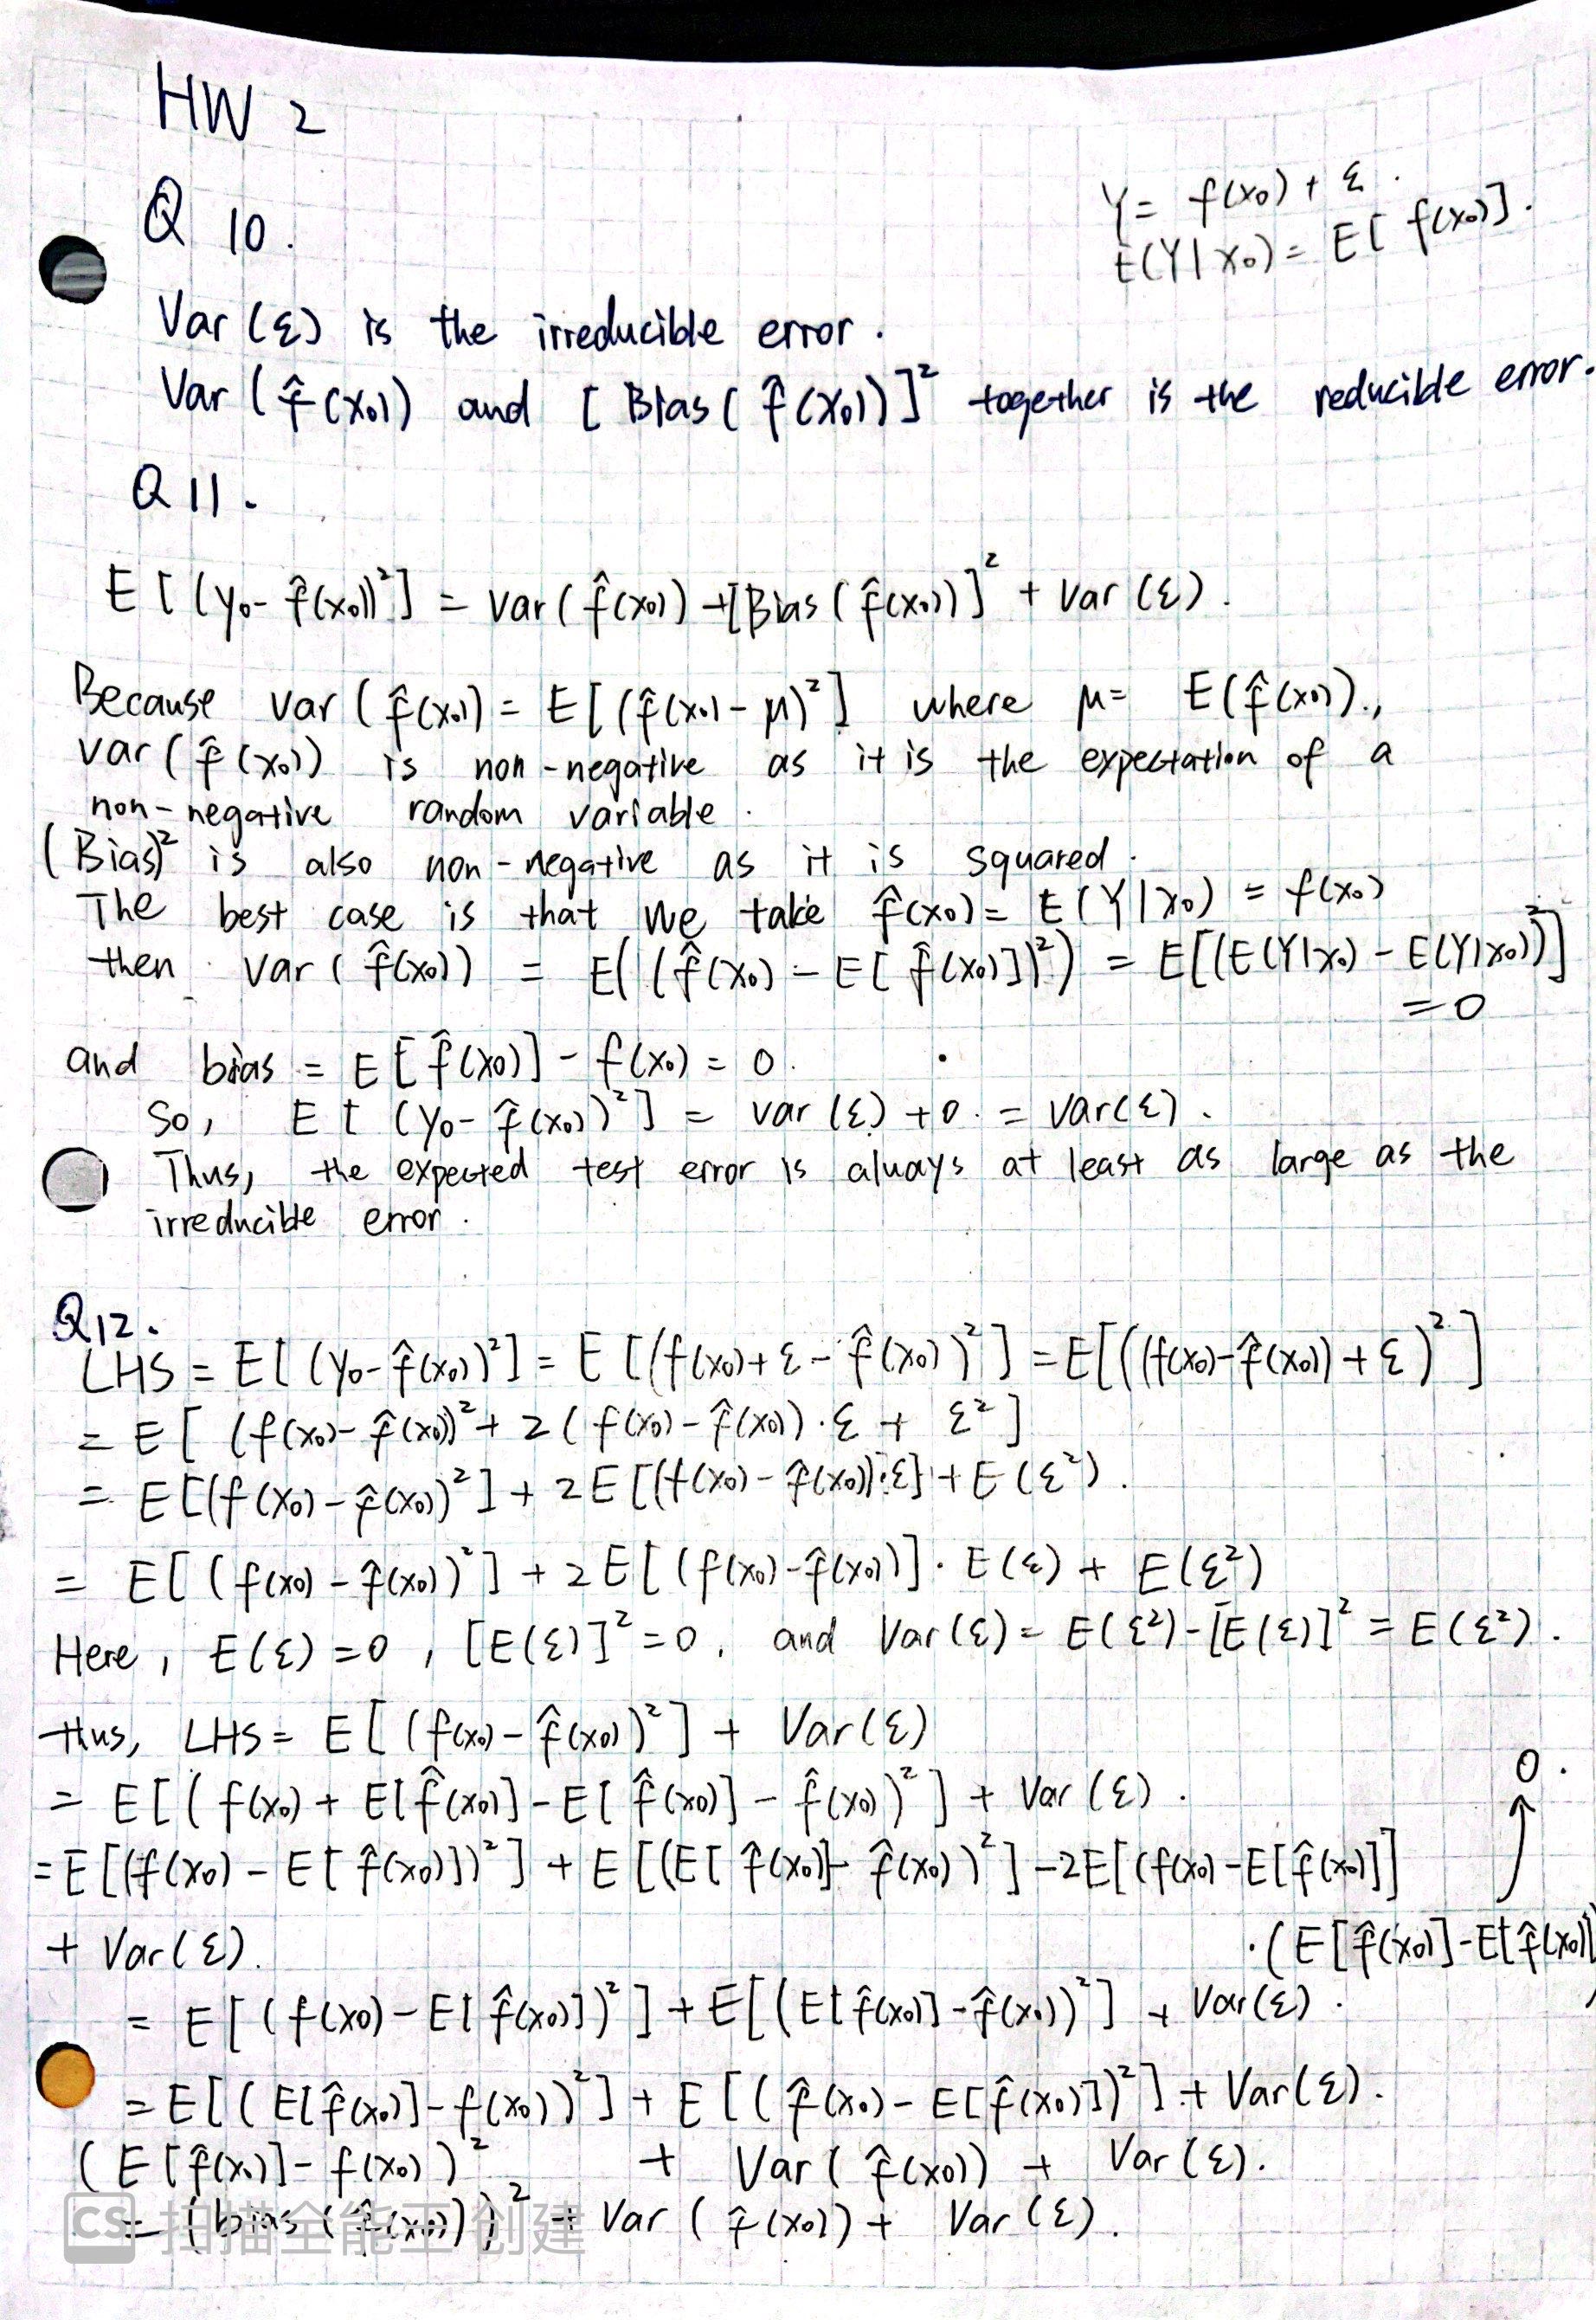 HW 2
Q 10.
Y = f(x₀) + ε.
E(Y|x₀) = E[ f(x₀)].
Var (ε) is the irreducible error.
Var ( f̂(x₀)) and [ Bias( f̂(x₀))]² together is the reducible error.
Q 11.
E [ (y₀- f̂(x₀))²] = var( f̂(x₀)) +[Bias ( f̂(x₀))]² + Var (ε).
Because var ( f̂(x₀)) = E[ (f̂(x₀) - μ)²] where μ= E( f̂(x₀)).,
var ( f̂(x₀)) is non-negative as it is the expectation of a
non-negative random variable.
(Bias)² is also non-negative as it is squared.
The best case is that we take f̂(x₀) = E(Y|x₀) = f(x₀)
then var ( f̂(x₀)) = E( (f̂(x₀) - E[ f̂(x₀)])²) = E[(E(Y|x₀) - E(Y|x₀))²]
=0
and bias = E[ f̂(x₀)] - f(x₀) = 0.
So, E[ (y₀- f̂(x₀))²] = var (ε) +0. = var(ε).
Thus, the expected test error is always at least as large as the
irreducible error.
Q12.
LHS = E[ (y₀- f̂(x₀))²] = E [(f(x₀)+ ε - f̂(x₀))²] = E[((f(x₀)- f̂(x₀)) + ε)²]
= E[ (f(x₀)- f̂(x₀))² + 2( f(x₀) - f̂(x₀)) · ε + ε²]
= E[(f(x₀) - f̂(x₀))²] + 2E[(f(x₀) - f̂(x₀))·ε] + E(ε²).
= E[ (f(x₀) - f̂(x₀))²] + 2E[ (f(x₀)- f̂(x₀))] · E(ε) + E(ε²)
Here, E(ε) =0 , [E(ε)]²=0, and Var(ε) = E(ε²)-[E(ε)]² = E(ε²).
thus, LHS = E[ (f(x₀) - f̂(x₀))²] + Var(ε)
= E[( f(x₀) + E[f̂(x₀)] - E[ f̂(x₀)] - f̂(x₀))²] + Var (ε).
0.
= E[(f(x₀) - E[ f̂(x₀)])²] + E[(E[ f̂(x₀)]- f̂(x₀))²] -2E[(f(x₀) -E[f̂(x₀)]]
·(E[f̂(x₀)]-E[f̂(x₀)])
+ Var(ε).
= E[ (f(x₀) - E[ f̂(x₀)])²] + E[(E[f̂(x₀)] - f̂(x₀))²] + Var(ε).
= E[( E[f̂(x₀)]- f(x₀))²] + E[( f̂(x₀) - E[f̂(x₀)])²] + Var(ε).
(E[f̂(x₀)]- f(x₀))² + Var ( f̂(x₀)) + Var (ε).
= (bias ( f̂(x₀)))² + Var ( f̂(x₀)) + Var (ε).
CS 扫描全能王 创建